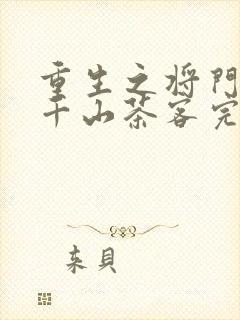 重生之将门
千山茶客完
来貝